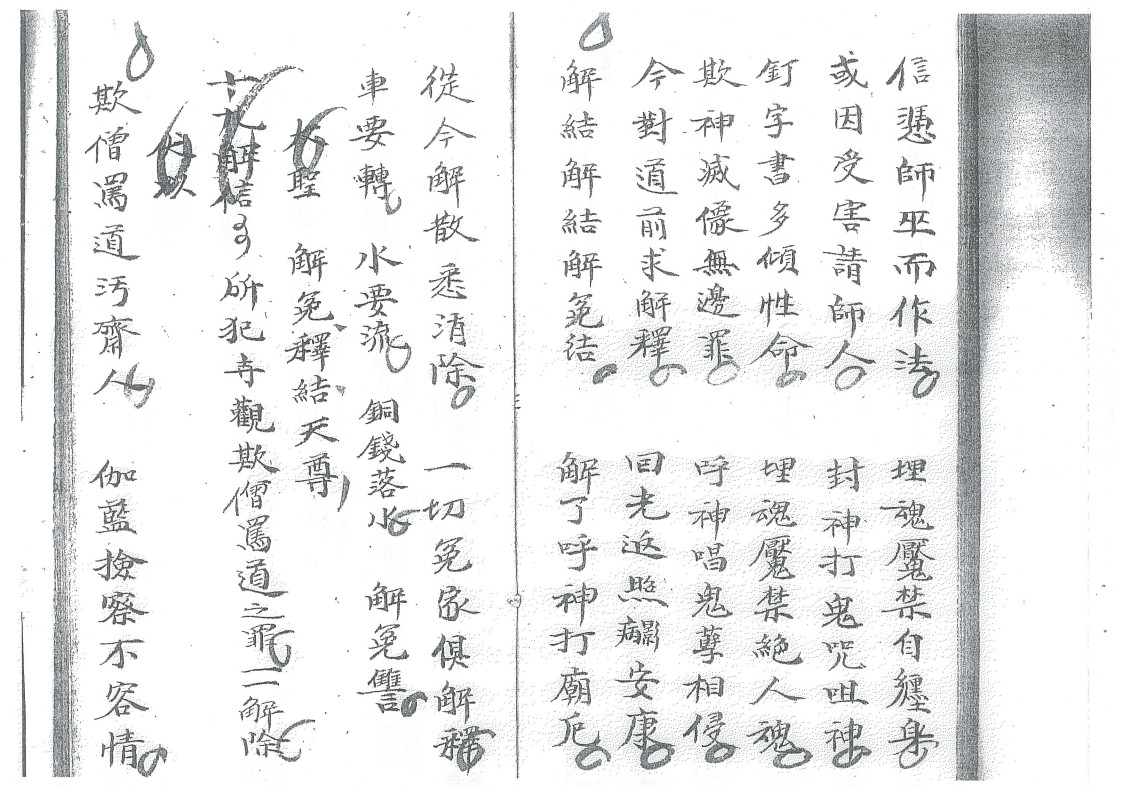 信憑師巫而作法 埋魂魘禁自纏身
或因受害請師人 封神打鬼咒咀神
釘字書多傾性命 埋魂魘禁絶人魂
欺神滅像無邊罪 呼神唱鬼孽相侵
今對道前求解釋 回光返照 安康
解結解結解冤结 解了呼神打廟厄
從今解散悉消除 一切冤家俱解釋
車要轉 水要流 銅錢落水 解冤讐
大聖 解冤釋結天尊
十九解信 所犯寺觀欺僧罵道之罪一一解除
欺僧罵道汚齋人 伽藍撿察不容情